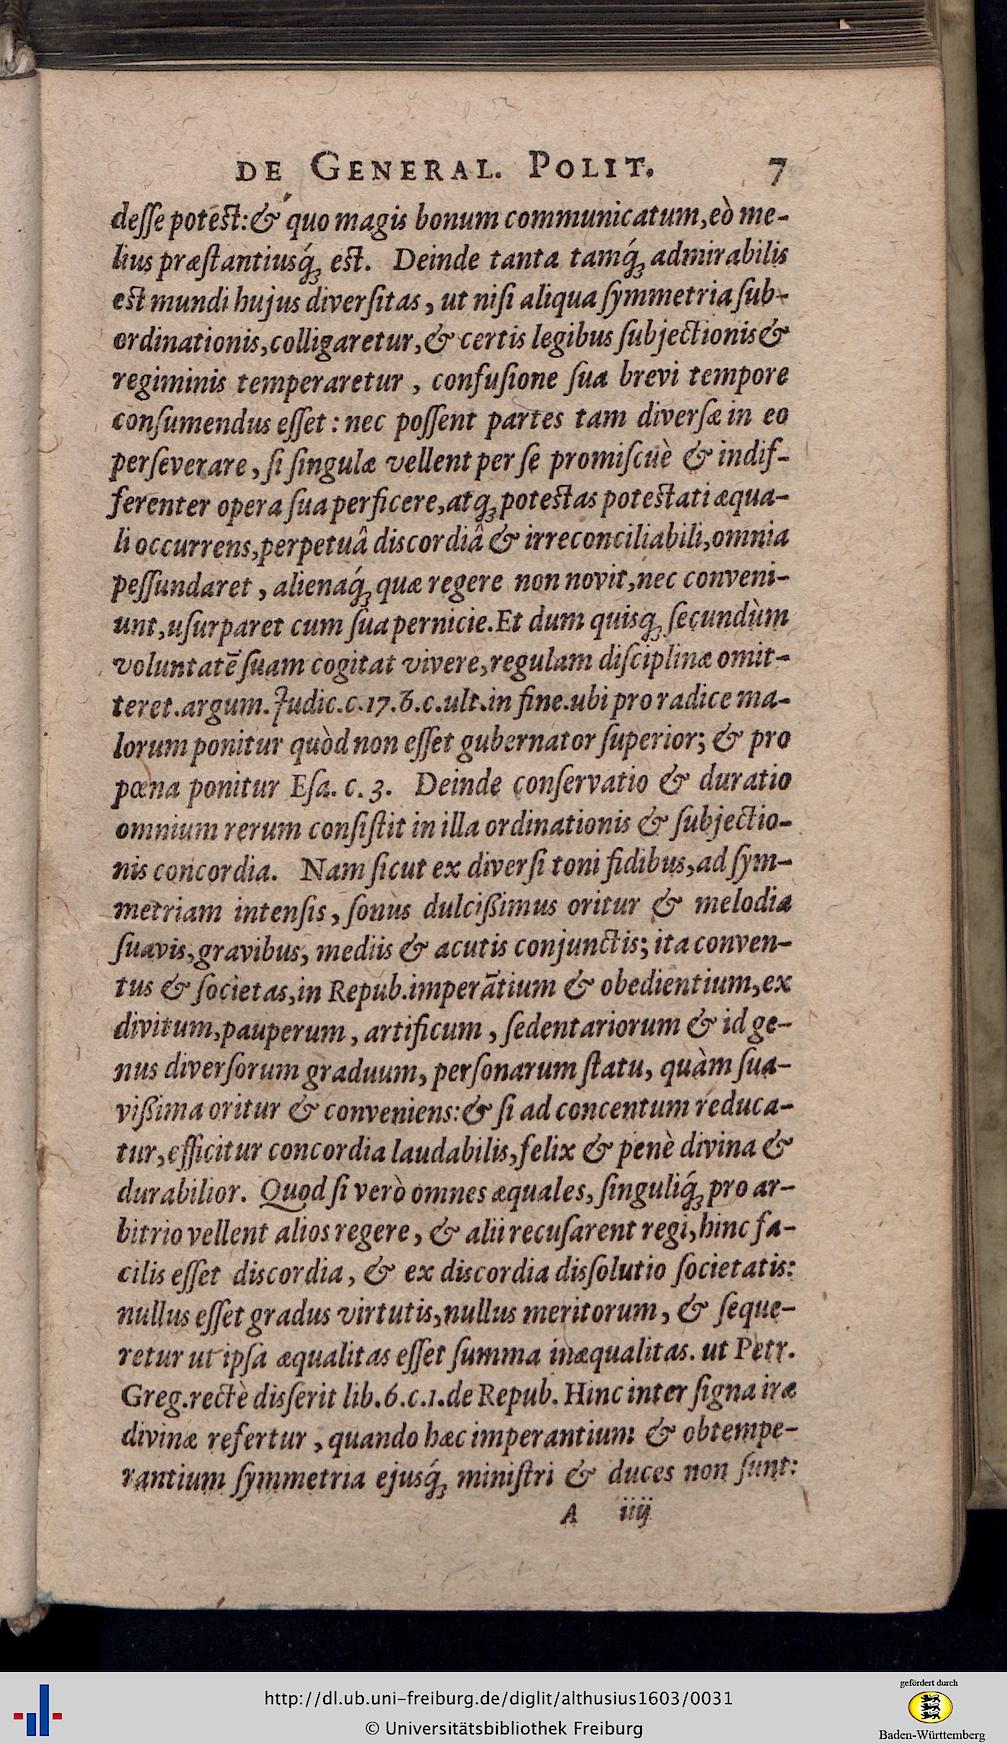 DE GENERAL. POLIT. 7
deſſe poteſt:& quo magis bonum communicatum,eò me-
lius præſtantiusq́ꝫ eſt. Deinde tanta tamq́ꝫ admirabilis
eſt mundi hujus diverſitas, ut niſi aliqua ſymmetria ſub-
ordinationis,colligaretur,& certis legibus ſubjectionis &
regiminis temperaretur, confuſione ſua brevi tempore
conſumendus eſſet: nec poſſent partes tam diverſæ in eo
perſeverare, ſi ſingulæ vellent per ſe promiſcuè & indif-
ferenter opera ſua perficere,atqꝫ poteſtas poteſtati æqua-
li occurrens,perpetuâ discordiâ & irreconciliabili,omnia
peſſundaret, alienaq́ꝫ quæ regere non novit,nec conveni-
unt,uſurparet cum ſua pernicie.Et dum quisqꝫ ſecundùm
voluntatē ſuam cogitat vivere,regulam diſciplinæ omit-
teret.argum.Judic.c.17.&.c.ult.in fine.ubi pro radice ma-
lorum ponitur quòd non eſſet gubernator ſuperior; & pro
pœna ponitur Eſa. c. 3. Deinde conſervatio & duratio
omnium rerum conſiſtit in illa ordinationis & ſubjectio-
nis concordia. Nam ſicut ex diverſi toni fidibus,ad ſym-
metriam intenſis, ſonus dulcißimus oritur & melodia
ſuavis,gravibus, mediis & acutis conjunctis; ita conven-
tus & ſocietas,in Repub.imperātium & obedientium,ex
divitum,pauperum, artificum, ſedentariorum & id ge-
nus diverſorum graduum, perſonarum ſtatu, quàm ſua-
vißima oritur & conveniens:& ſi ad concentum reduca-
tur,efficitur concordia laudabilis,felix & penè divina &
durabilior. Quod ſi verò omnes æquales, ſinguliq́ꝫ pro ar-
bitrio vellent alios regere, & alii recuſarent regi,hinc fa-
cilis eſſet discordia, & ex discordia disſolutio ſocietatis:
nullus eſſet gradus virtutis,nullus meritorum, & ſeque-
retur ut ipſa æqualitas eſſet ſumma inæqualitas. ut Petr.
Greg.rectè disſerit lib.6.c.1.de Repub. Hinc inter ſigna iræ
divinæ refertur, quando hæc imperantium & obtempe-
rantium ſymmetria ejusq́ꝫ miniſtri & duces non ſunt:
A iiij
http://dl.ub.uni-freiburg.de/diglit/althusius1603/0031
© Universitätsbibliothek Freiburg
gefördert durch
Baden-Württemberg